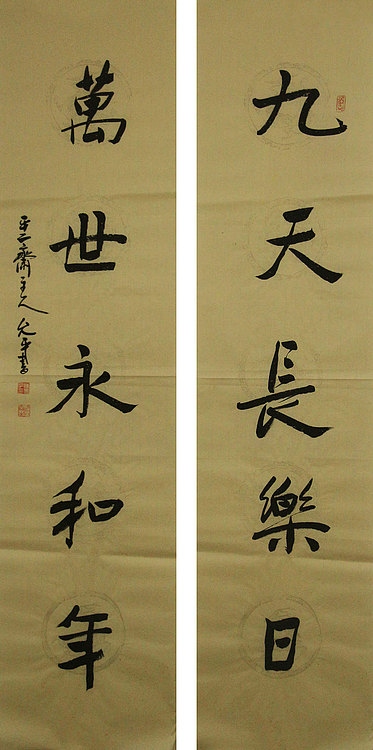 九天長樂日
萬世永和年
齋主人允平書